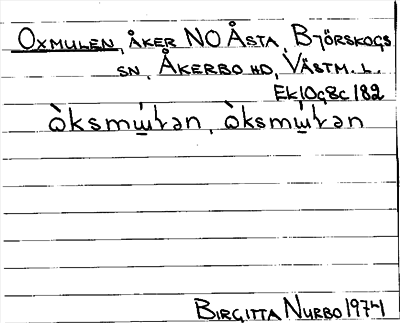 OXMULEN, ÅKER NO ÅSTA, BJÖRSKOGS
SN, ÅKERBO HD, VÄSTM. L.
Ek 10g8c 182
Birgitta Nurbo 1974